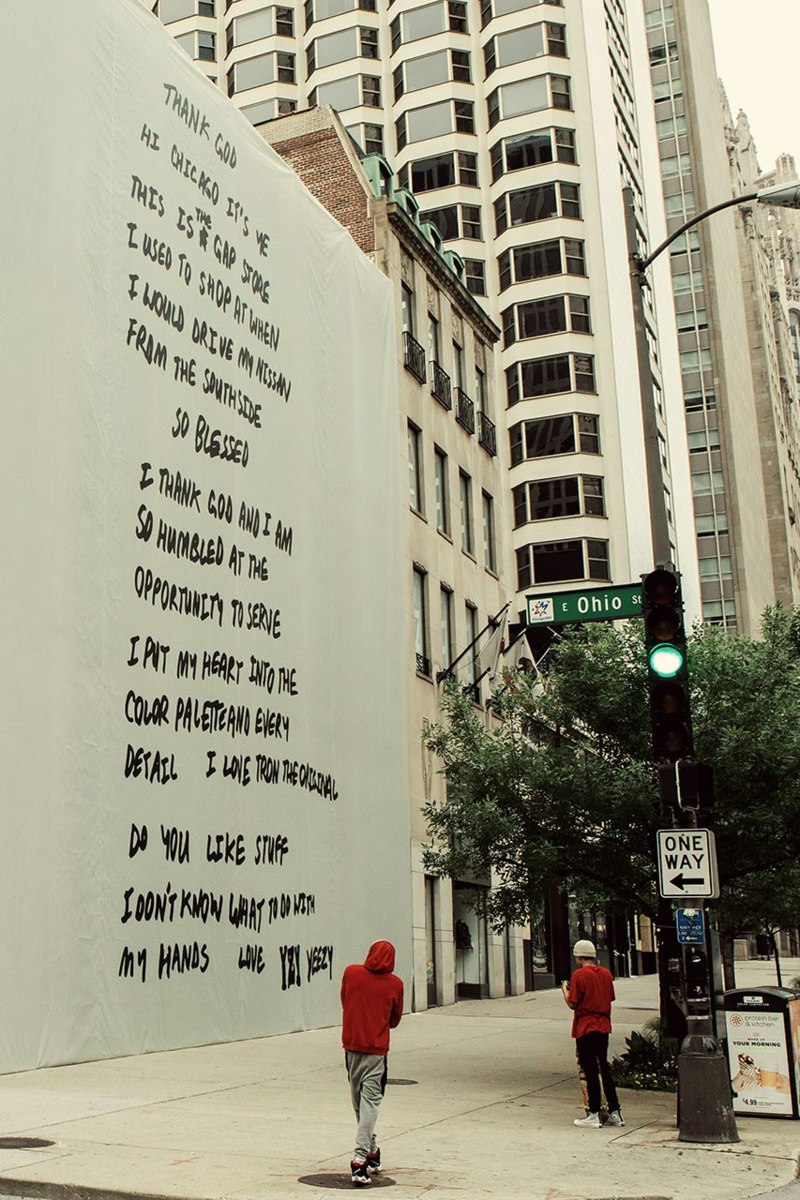 THANK GOD
HI CHICAGO IT'S YE
THIS IS THE GAP STORE
I USED TO SHOP AT WHEN
I WOULD DRIVE MY NISSAN
FROM THE SOUTHSIDE
SO BLESSED
I THANK GOD AND I AM
SO HUMBLED AT THE
OPPORTUNITY TO SERVE
I PUT MY HEART INTO THE
COLOR PALETTE AND EVERY
DETAIL I LOVE TRON THE ORIGINAL
DO YOU LIKE STUFF
I DON'T KNOW WHAT TO DO WITH
MY HANDS LOVE YZY YEEZY
E Ohio St
ONE
WAY
protein bar
& kitchen
YOUR MORNING
$4.99